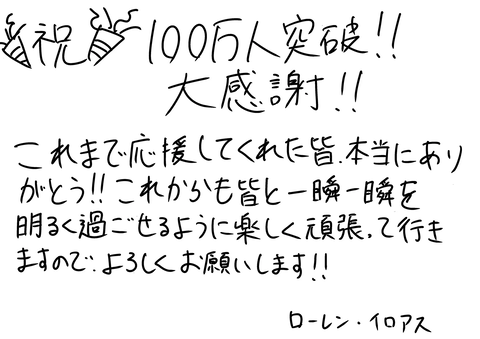 祝 100万人突破!!
大感謝!!
これまで応援してくれた皆、本当にあり
がとう!! これからも皆と一瞬一瞬を
明るく過ごせるように楽しく頑張って行き
ますので、よろしくお願いします!!
ローレン・イロアス